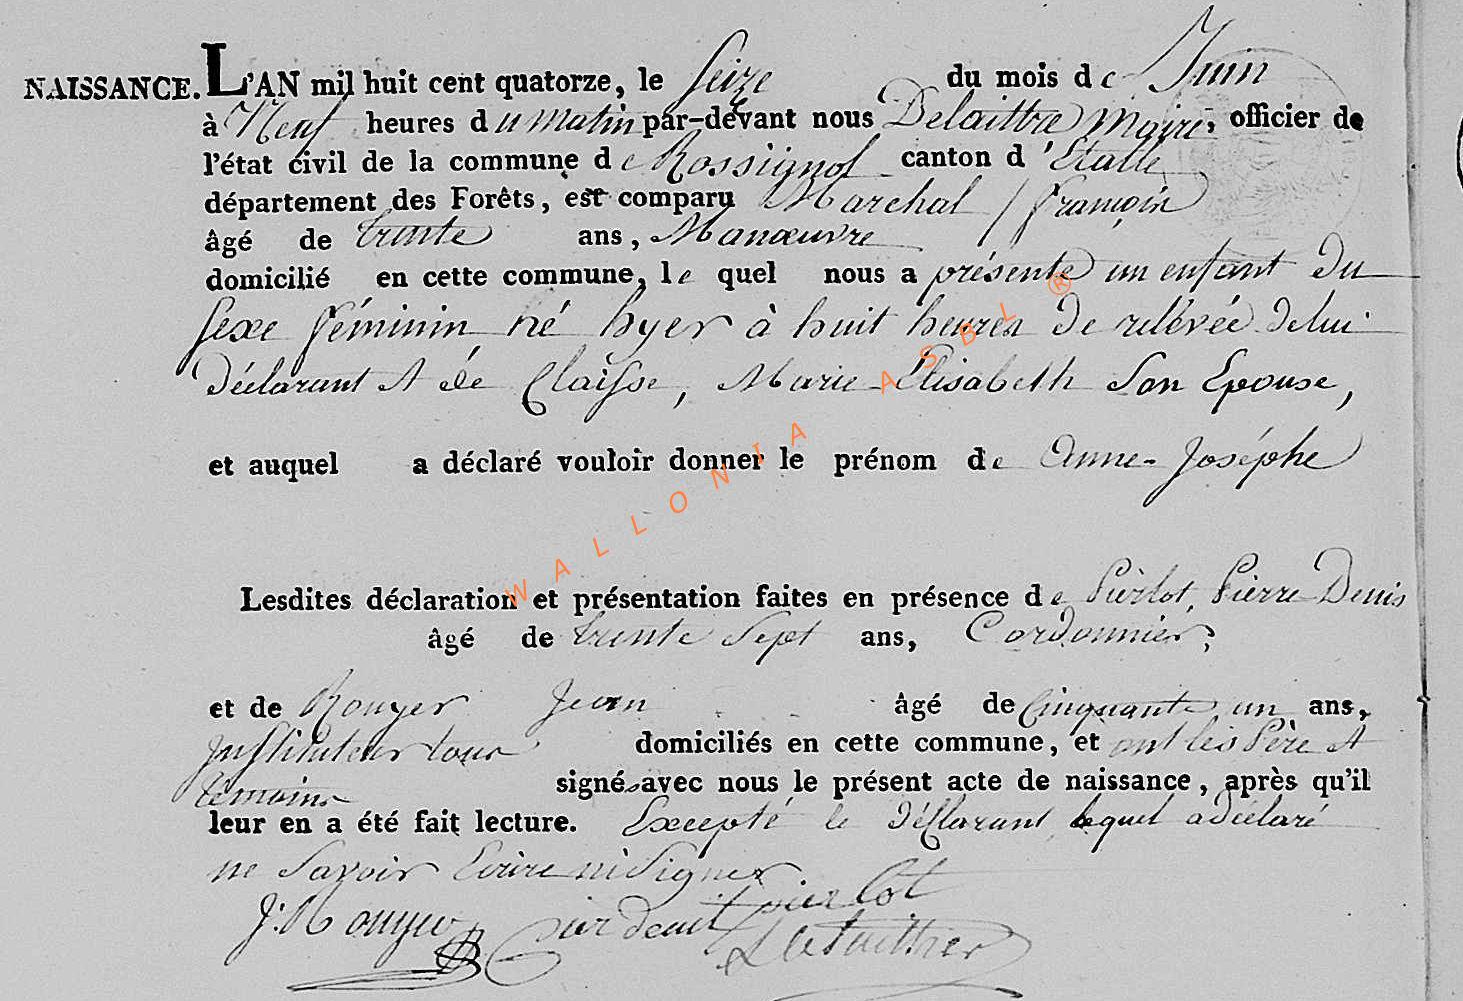 NAISSANCE. L'AN mil huit cent quatorze, le Seize du mois de Juin
à Neuf heures du matin par-devant nous Delaittre Maire, officier de
l'état civil de la commune de Rossignol canton d'Etalle
département des Forêts, est comparu Marchal françois
âgé de trente ans, Manœuvre
domicilié en cette commune, le quel nous a présenté un enfant du
sexe féminin né hyer à huit heures de rélévée de lui
déclarant et de Claisse, Marie Elisabeth Son Epouse,
et auquel a déclaré vouloir donner le prénom de Anne-Joséphe
Lesdites déclaration et présentation faites en présence de Pierlot, Pierre Denis
âgé de trente Sept ans, Cordonnier,
et de Rouyer Jean âgé de Cinquante un ans,
Instituteur tous domiciliés en cette commune, et ont les Père et
témoins signé avec nous le présent acte de naissance, après qu'il
leur en a été fait lecture. Excepté le déclarant lequel a déclaré
ne Savoir Ecrire ni Signer
J. Rouyer pierlot
Delaittre
WALLONIA ASBL ®